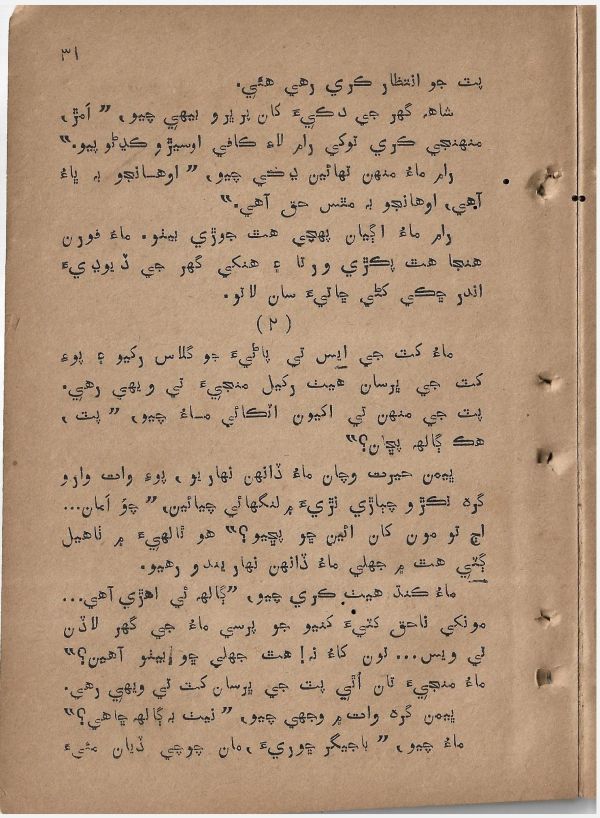 ٣١
پٽ جو انتظار ڪري رهي هئي.
شاهه گهر جي دڪيءَ کان ٻرڀرو بيهي چيو، ”اَمڙ،
منهنجي ڪري توکي رام لاءِ ڪافي اوسيڙو ڪڍڻو پيو.“
رام ماءُ منهن تهائين ڍڪي چيو، ”اوهانجو به ڀاءُ
آهي، اوهانجو به مٿس حق آهي.“
رام ماءُ اڳيان پهچي هٿ جوڙي بيٺو. ماءُ فورن
هنجا هٿ پڪڙي ورتا ۽ هنکي گهر جي ڏيوڍيءَ
اندر ڇڪي کڻي ڇاتيءَ سان لاتو.
(٢)
ماءُ کٽ جي ايس تي پاڻيءَ جو گلاس رکيو ۽ پوءِ
کٽ جي ڀرسان هيٺ رکيل منجيءَ تي ويهي رهي.
پٽ جي منهن تي اکيون اٽڪائي ماءُ چيو، ”پٽ،
هڪ ڳالهه پڇان؟“
ڀيمن حيرت وچان ماءُ ڏانهن نهاريو، پوءِ وات وارو
گرهه ٽڪڙو چٻاڙي نڙيءَ ۾ لنگهائي چيائين، ”چؤ اَمان...
اڄ تو مون کان ائين ڇو پڇيو؟“ هو ٿالهيءَ ۾ ٺاهيل
ڳٽي هٿ ۾ جهلي ماءُ ڏانهن نهاريندو رهيو.
ماءُ ڪنڌ هيٺ ڪري چيو، ”ڳالهه ئي اهڙي آهي...
مونکي ناحق کٽيءَ کنيو جو پرسي ماءُ جي گهر لاڏن
تي ويس... تون کاءُ نه! هٿ جهلي ڇو بيٺو آهين؟“
ماءُ منجيءَ تان اُٿي پٽ جي ڀرسان کٽ تي ويهي رهي.
ڀيمن گرهه وات ۾ وجهي چيو، ”نيٺ به ڳالهه ڇاهي؟“
ماءُ چيو، ”باجيگر ڇوريءَ، مان چوچي ڏيان مئيءَ